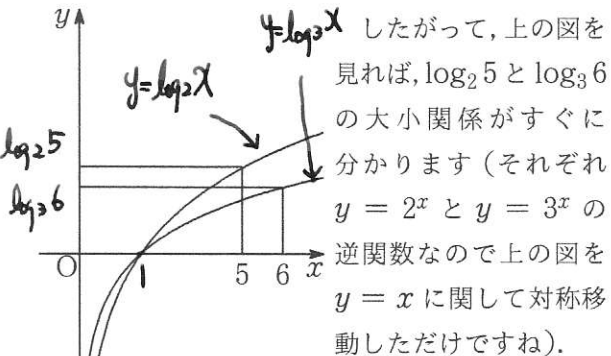 y
y=log₂x
y=log₃x
log₂5
log₃6
O
1
5
6
x
したがって, 上の図を
見れば, log₂ 5 と log₃ 6
の大小関係がすぐに
分かります (それぞれ
y = 2ˣ と y = 3ˣ の
逆関数なので上の図を
y = x に関して対称移
動しただけですね).